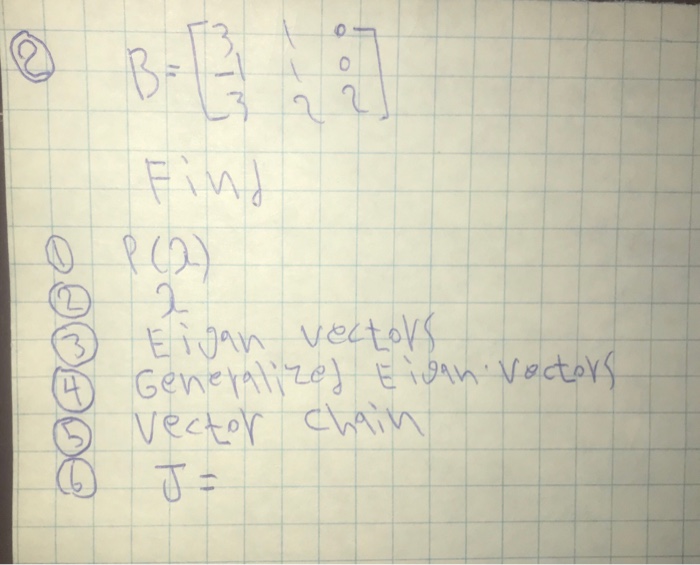 ② B = [ 3 1 0
-1 1 0
3 2 2 ]
Find
① P(λ)
② λ
③ Eigan vectors
④ Generalized Eigan vectors
⑤ vector chain
⑥ J =